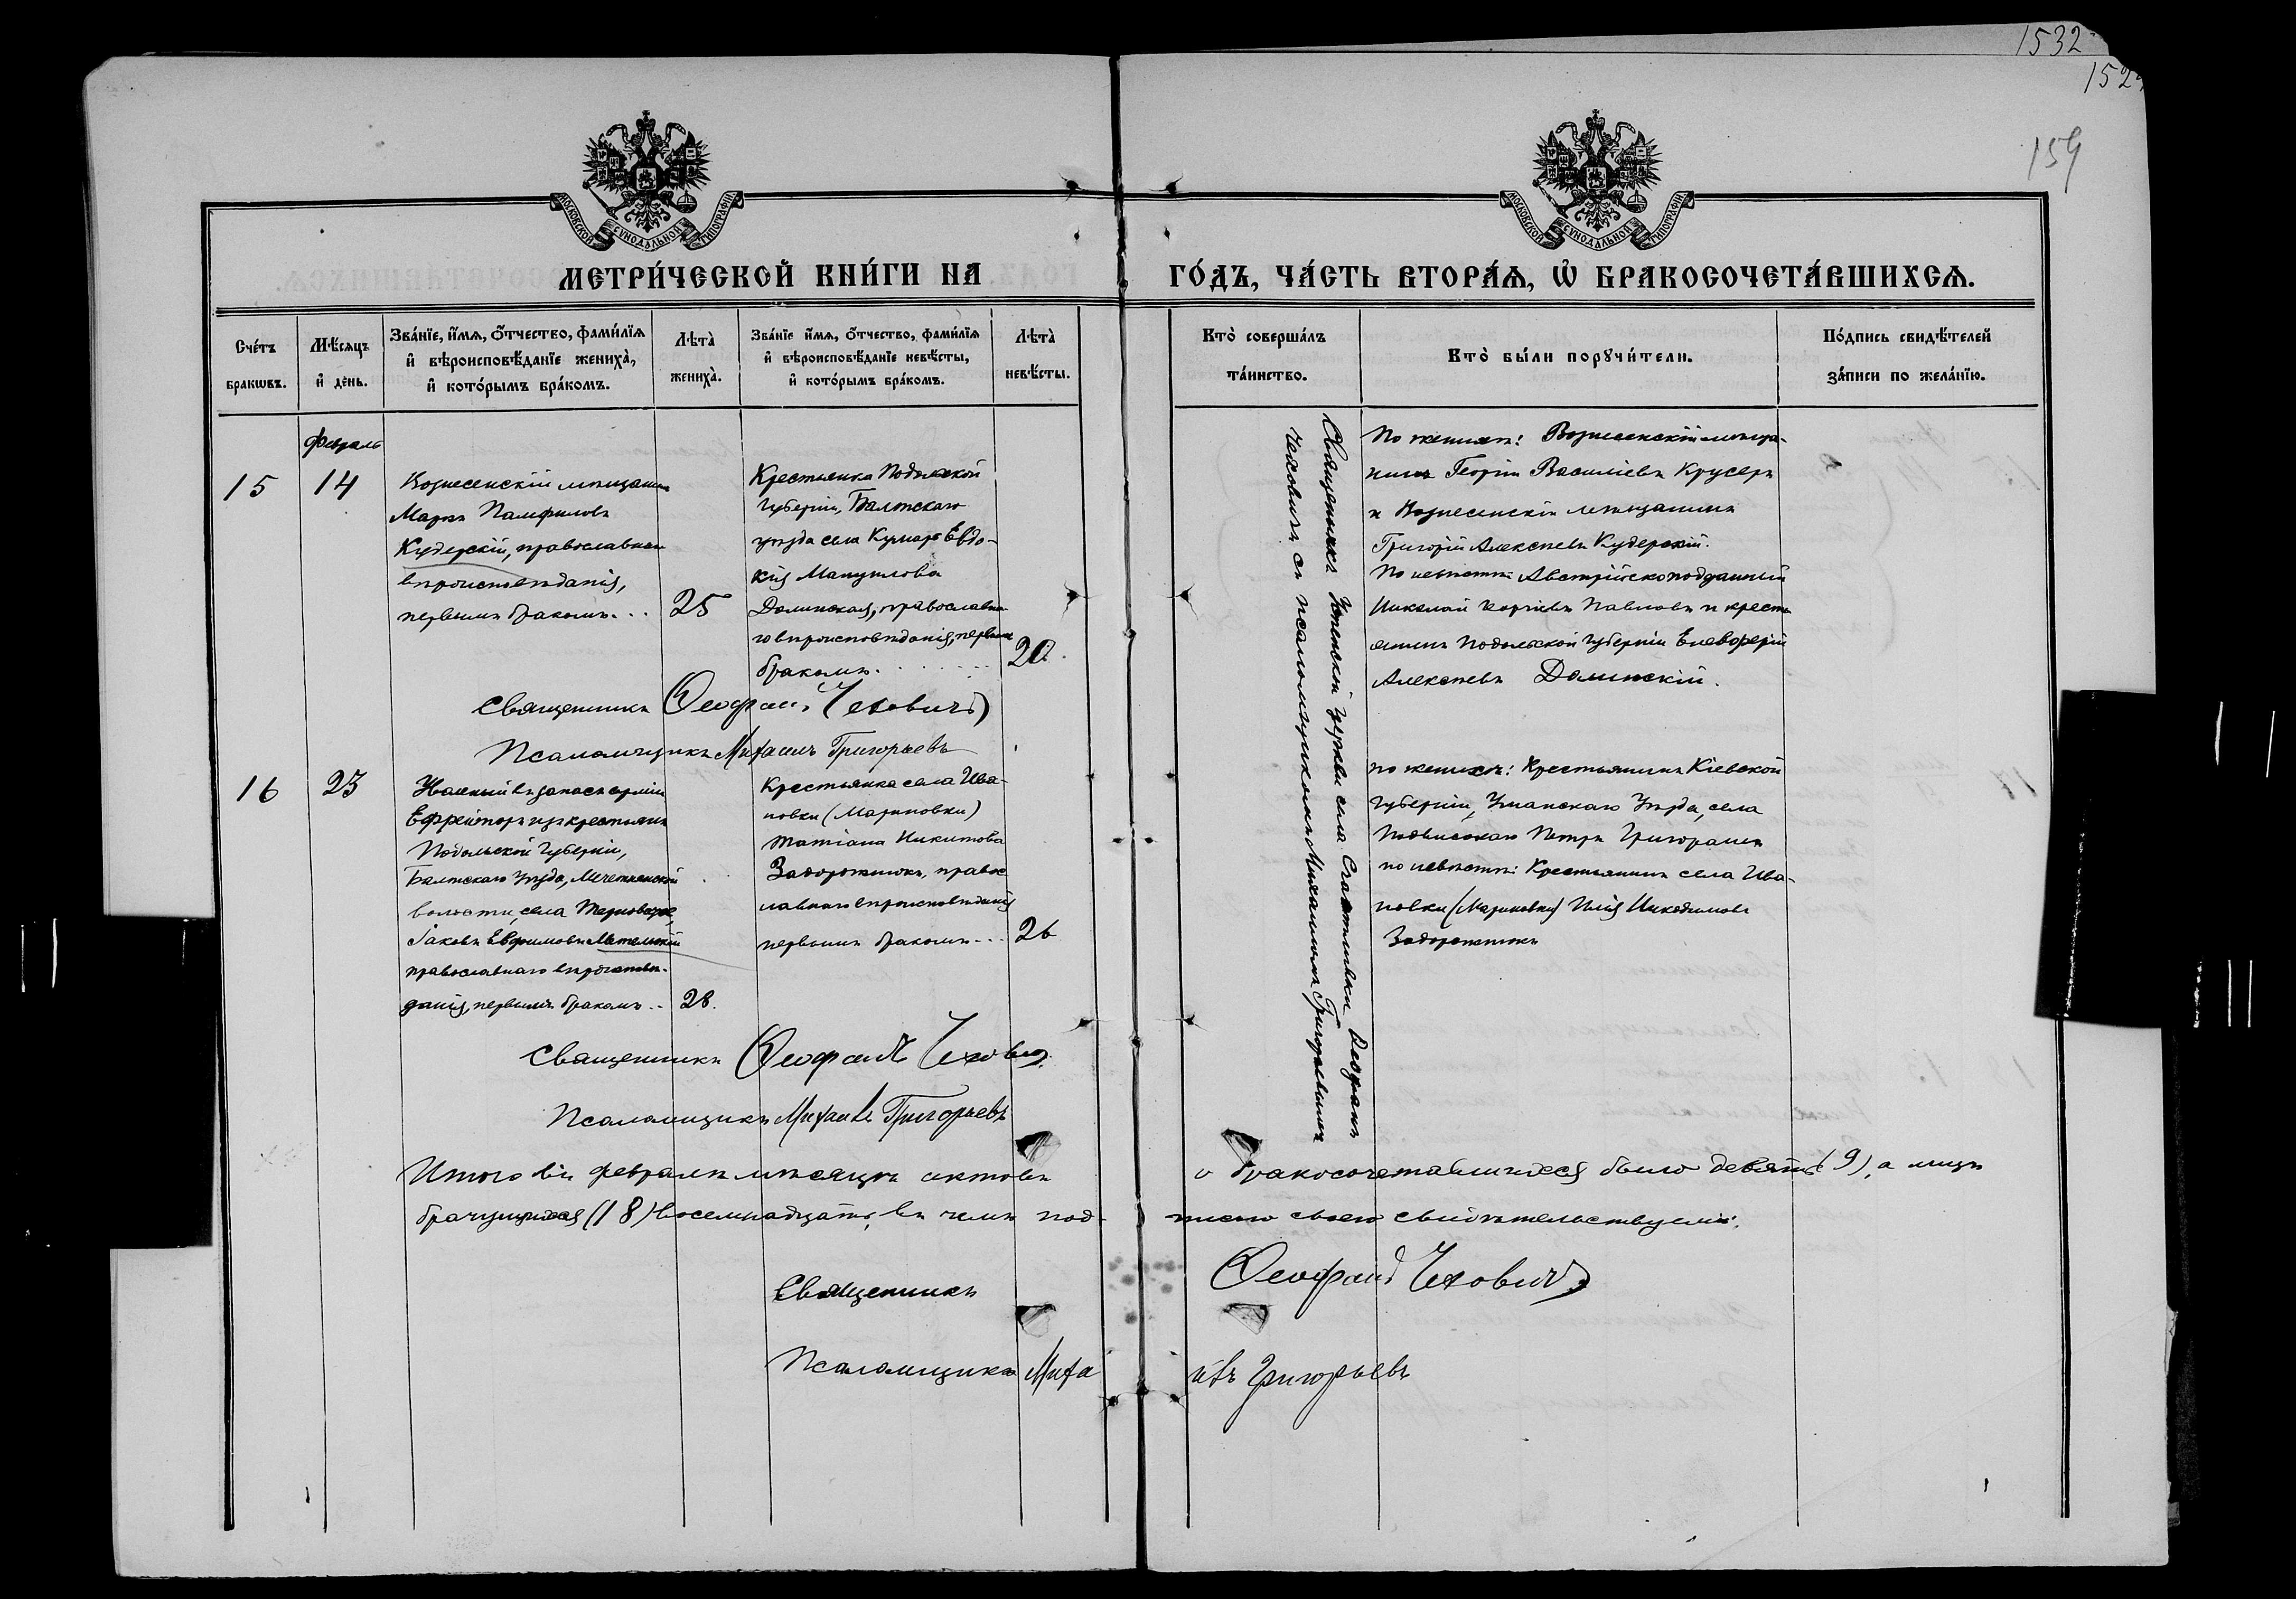 1532
152
159
МОСКОВСКОЙ СѴНОДАЛЬНОЙ ТИПОГРАФІИ.
МОСКОВСКОЙ СѴНОДАЛЬНОЙ ТИПОГРАФІИ.
МЕТРИ́ЧЕСКОЙ КНИ́ГИ НА
ГО́ДЪ, ЧА́СТЬ ВТОРА́Ѧ, Ѽ БРАКОСОЧЕТА́ВШИХСѦ.
Сче́тъ
бракѡвъ.
Мѣ́сяцъ
и҆ де́нь.
Зва́нїе, и҆́мѧ, ѻ҆́тчество, фами́лїѧ
и҆ вѣроисповѣ́данїе жениха̀,
и҆ кото́рымъ бра́комъ.
Лѣ́та̀
жениха̀.
Зва́нїе и҆́мѧ, ѻ҆́тчество, фами́лїѧ
и҆ вѣроисповѣ́данїе невѣ́сты,
и҆ кото́рымъ бра́комъ.
Лѣ́та̀
невѣ́сты.
Кто̀ соверша́лъ
та́инство.
Кто̀ бы́ли порꙋчи́тели.
По́дпись свидѣ́телей
за́писи по жела́нїю.
Февраль
15
14
Вознесенскій мѣщанинъ
Маркъ Памфиловъ
Кудерскій, православнаго
вѣроисповѣданія,
первымъ бракомъ...
25
Крестьянка Подольской
Губерніи, Балтскаго
уѣзда села Кумаро Евдо-
кія Мануилова
Долинская, православна-
го вѣроисповѣданія, первымъ
бракомъ.
20.
Священникъ Ѳеофанъ Чеховичъ
Псаломщикъ Михаилъ Григорьевъ
Священникъ Успенской церкви села Счастливки Ѳеофанъ
Чеховичъ съ псаломщикомъ Михаиломъ Григорьевымъ
По женихѣ: Вознесенскій мѣща-
нинъ Георгій Василіевъ Крусеръ
и Вознесенскій мѣщанинъ
Григорій Алексѣевъ Кудерскій.
По невѣстѣ: Австрійскоподданный
Николай Георгіевъ Павловъ и кресть
янинъ Подольской губерніи Елевферій
Алексѣевъ Долинскій.
16
23
въ запасѣ арміи
Ефрейторъ изъ крестьянъ
Подольской Губерніи,
Балтскаго уѣзда,
волости, села
Іаковъ Евфимовъ Метельскій
православнаго вѣроисповѣ-
данія, первымъ бракомъ..
28.
Крестьянка села Ива-
новки (Мариновки)
Татіана Никитова
Задорожнюкъ, правос
лавнаго вѣроисповѣданія
первымъ бракомъ...
26
по женихѣ: Крестьянинъ Кіевской
губерніи, Уманскаго Уѣзда, села
Подвысокаго Петръ Григорашъ
по невѣстѣ: Крестьянинъ села Ива-
новки (Мариновки) Илія Никодимовъ
Задорожнюкъ
Священникъ Ѳеофанъ Чеховичъ
Псаломщикъ Михаилъ Григорьевъ
Итого въ февралѣ мѣсяцѣ актовъ о бракосочетавшихся было девять (9), а лицъ
брачущихся (18) восемнадцать, въ чемъ под- писью своею свидѣтельствуемъ.
Священникъ Ѳеофанъ Чеховичъ
Псаломщикъ Михаилъ Григорьевъ